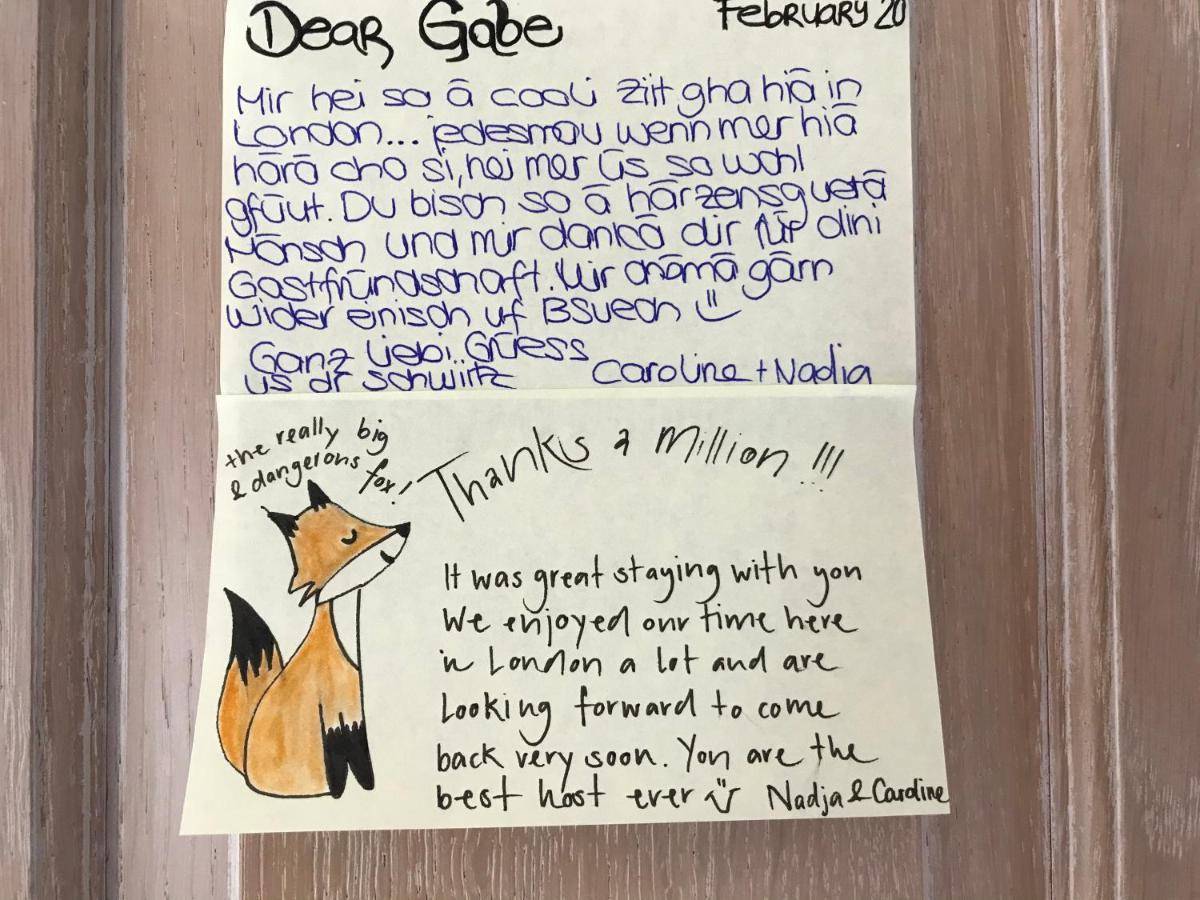 Dear Gabe
February 20
Mir hei so ä cooli ziit gha hiä in
London... jedesmau wenn mer hiä
härä cho si, hei mer üs so wohl
gfüut. Du bisch so ä härzensguetä
Mönsch und mir dankä dir für dini
Gastfründschaft. Mir chömä gärn
wider einisch uf Bsuech
Ganz liebi Grüess
us dr Schwiitz
Caroline + Nadja
the really big
& dangerous fox!
Thanks a Million !!!
It was great staying with you
We enjoyed our time here
in London a lot and are
Looking forward to come
back very soon. You are the
best host ever Nadja & Caroline